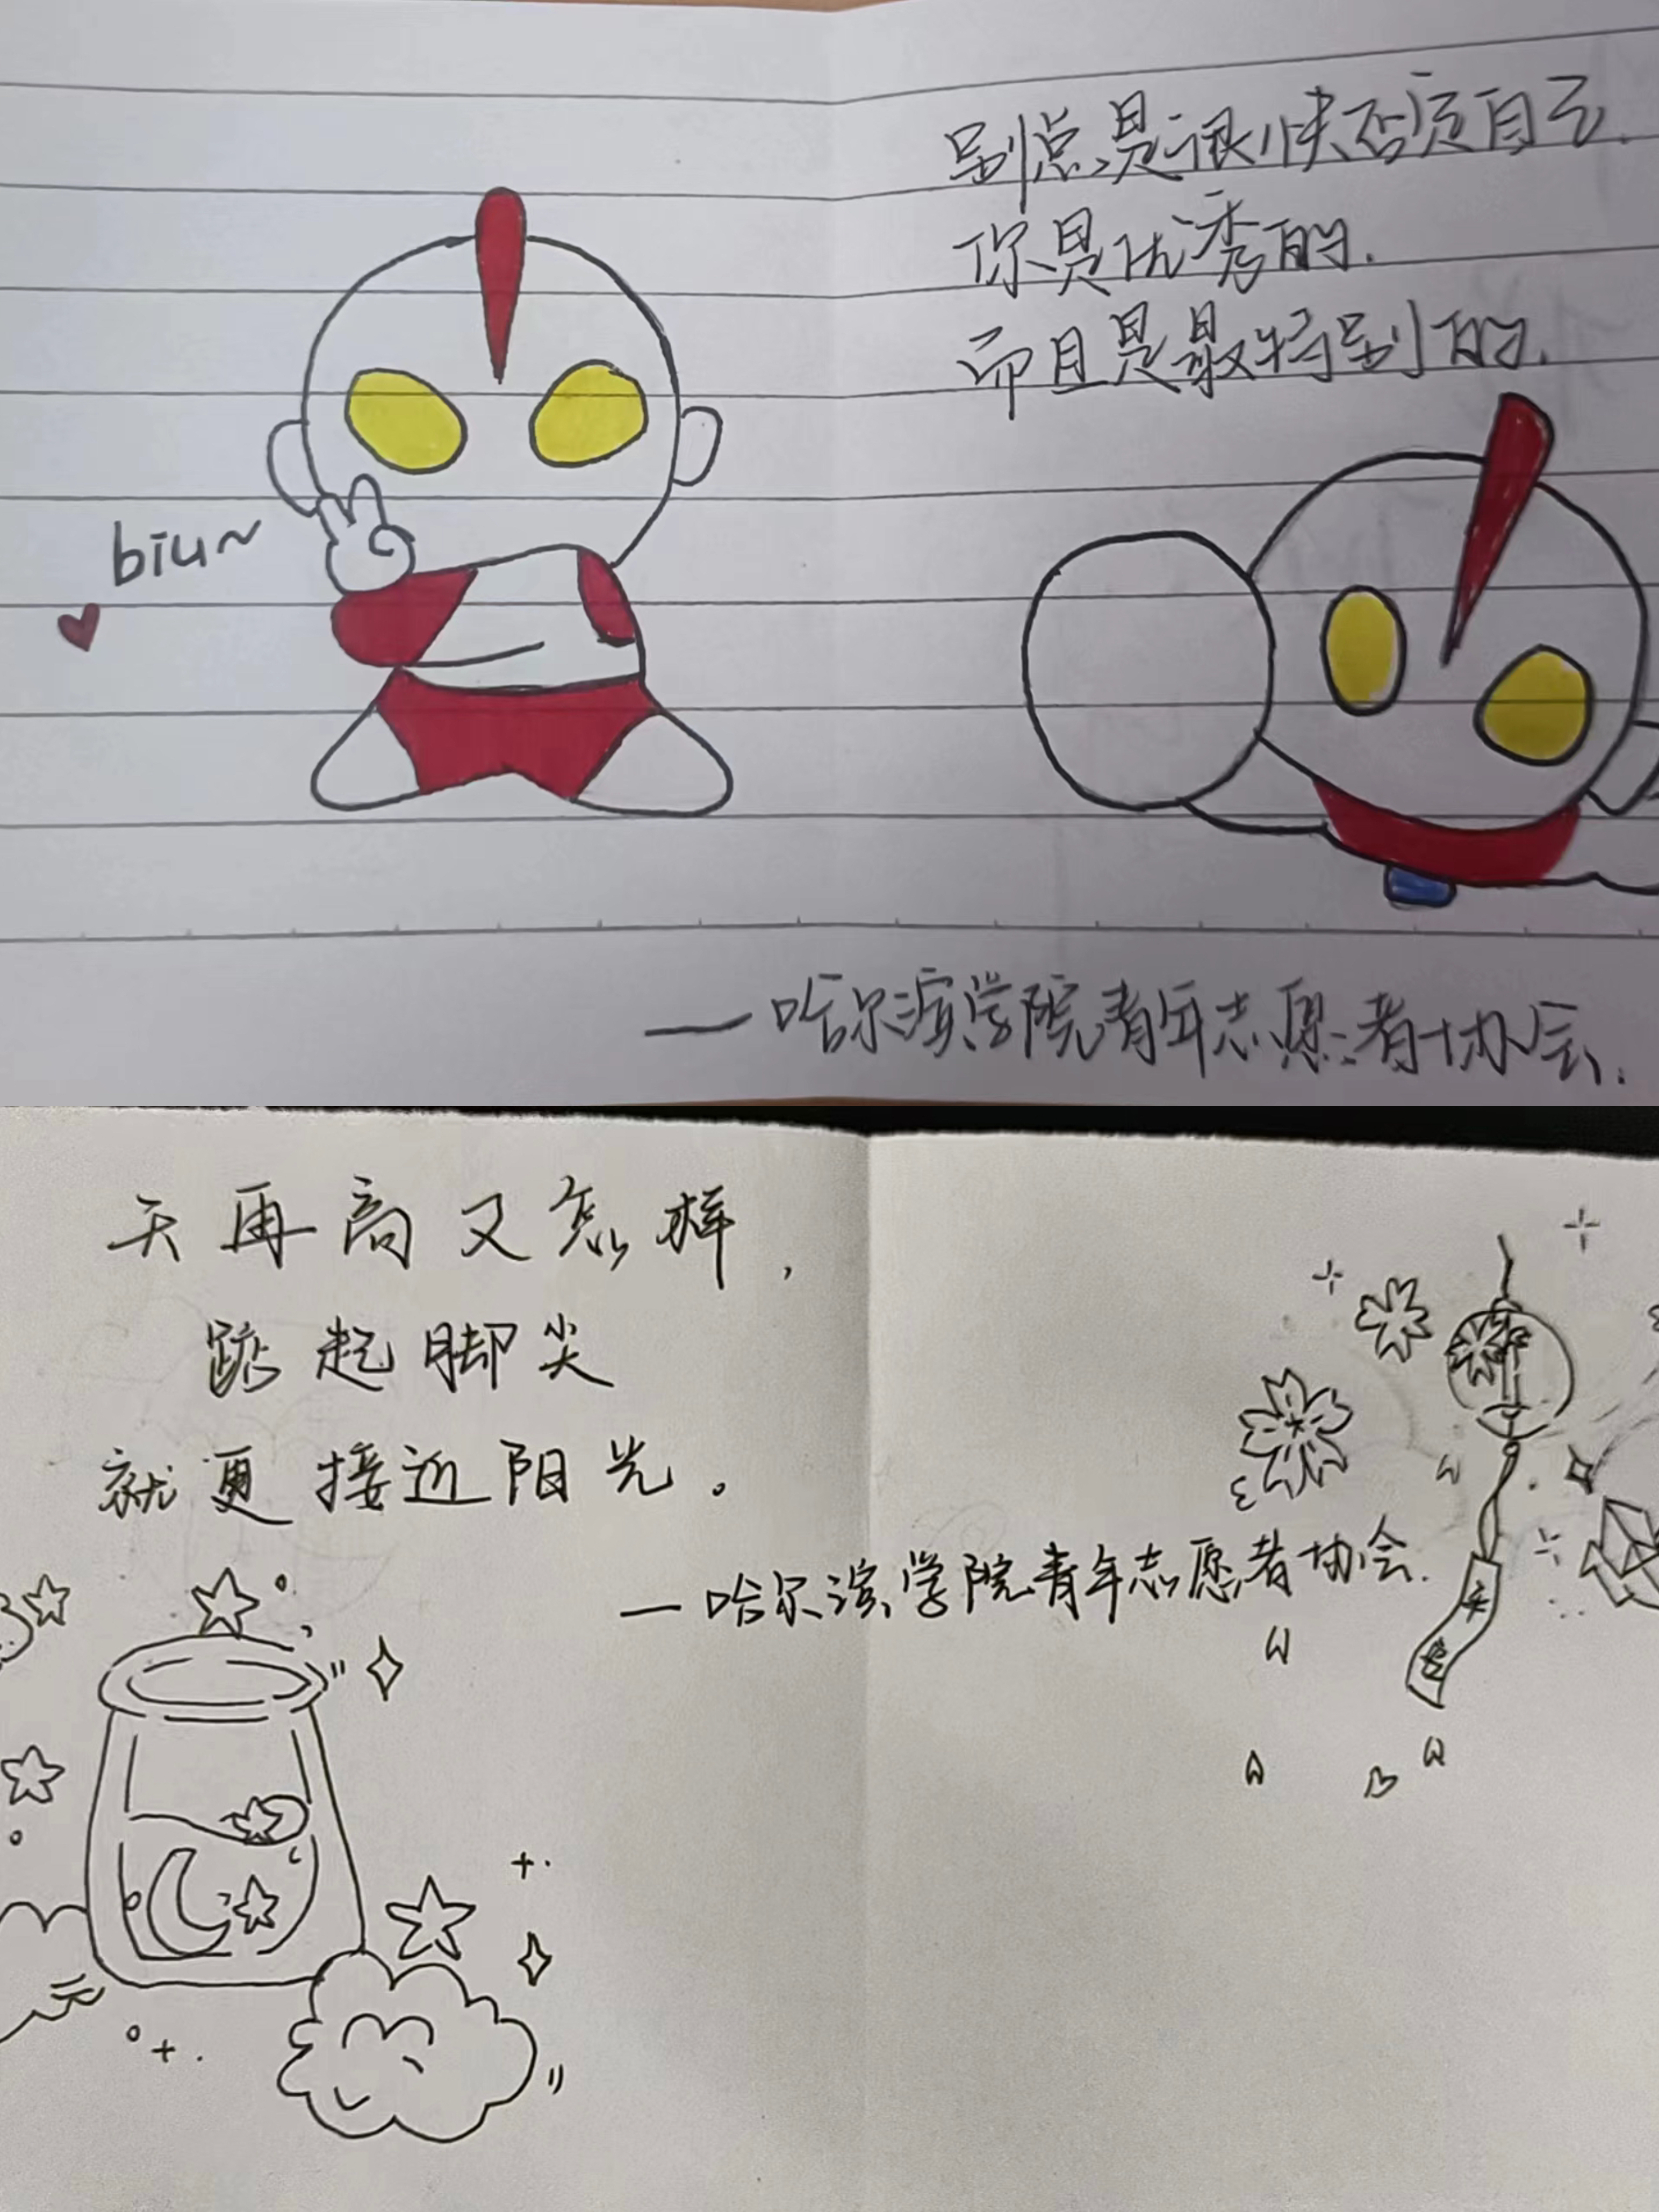 别总是很快否定自己.
你是优秀的.
而且是最特别的.
biu~
——哈尔滨学院青年志愿者协会.
天再高又怎样,
踮起脚尖
就更接近阳光。
—哈尔滨学院青年志愿者协会.